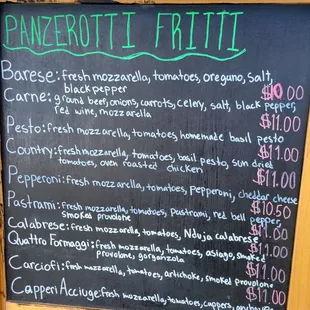 PANZEROTTI FRITTI
Barese: fresh mozzarella, tomatoes, oregano, salt,
black pepper $10.00
Carne: ground beef, onions, carrots, celery, salt, black pepper,
red wine, mozzarella $11.00
Pesto: fresh mozzarella, tomatoes, homemade basil pesto
$11.00
Country: fresh mozzarella, tomatoes, basil pesto, sun dried
tomatoes, oven roasted chicken $11.00
Pepperoni: fresh mozzarella, tomatoes, pepperoni, cheddar cheese
$10.50
Pastrami: fresh mozzarella, tomatoes, pastrami, red bell pepper,
smoked provolone
Calabrese: fresh mozzarella, tomatoes, Nduja calabrese
Quattro Formaggi: fresh mozzarella, tomatoes, asiago, smoked
provolone, gorgonzola $11.00
Carciofi: fresh mozzarella, tomatoes, artichoke, smoked provolone
$11.00
Capperi Acciuge: fresh mozzarella, tomatoes, cappers,